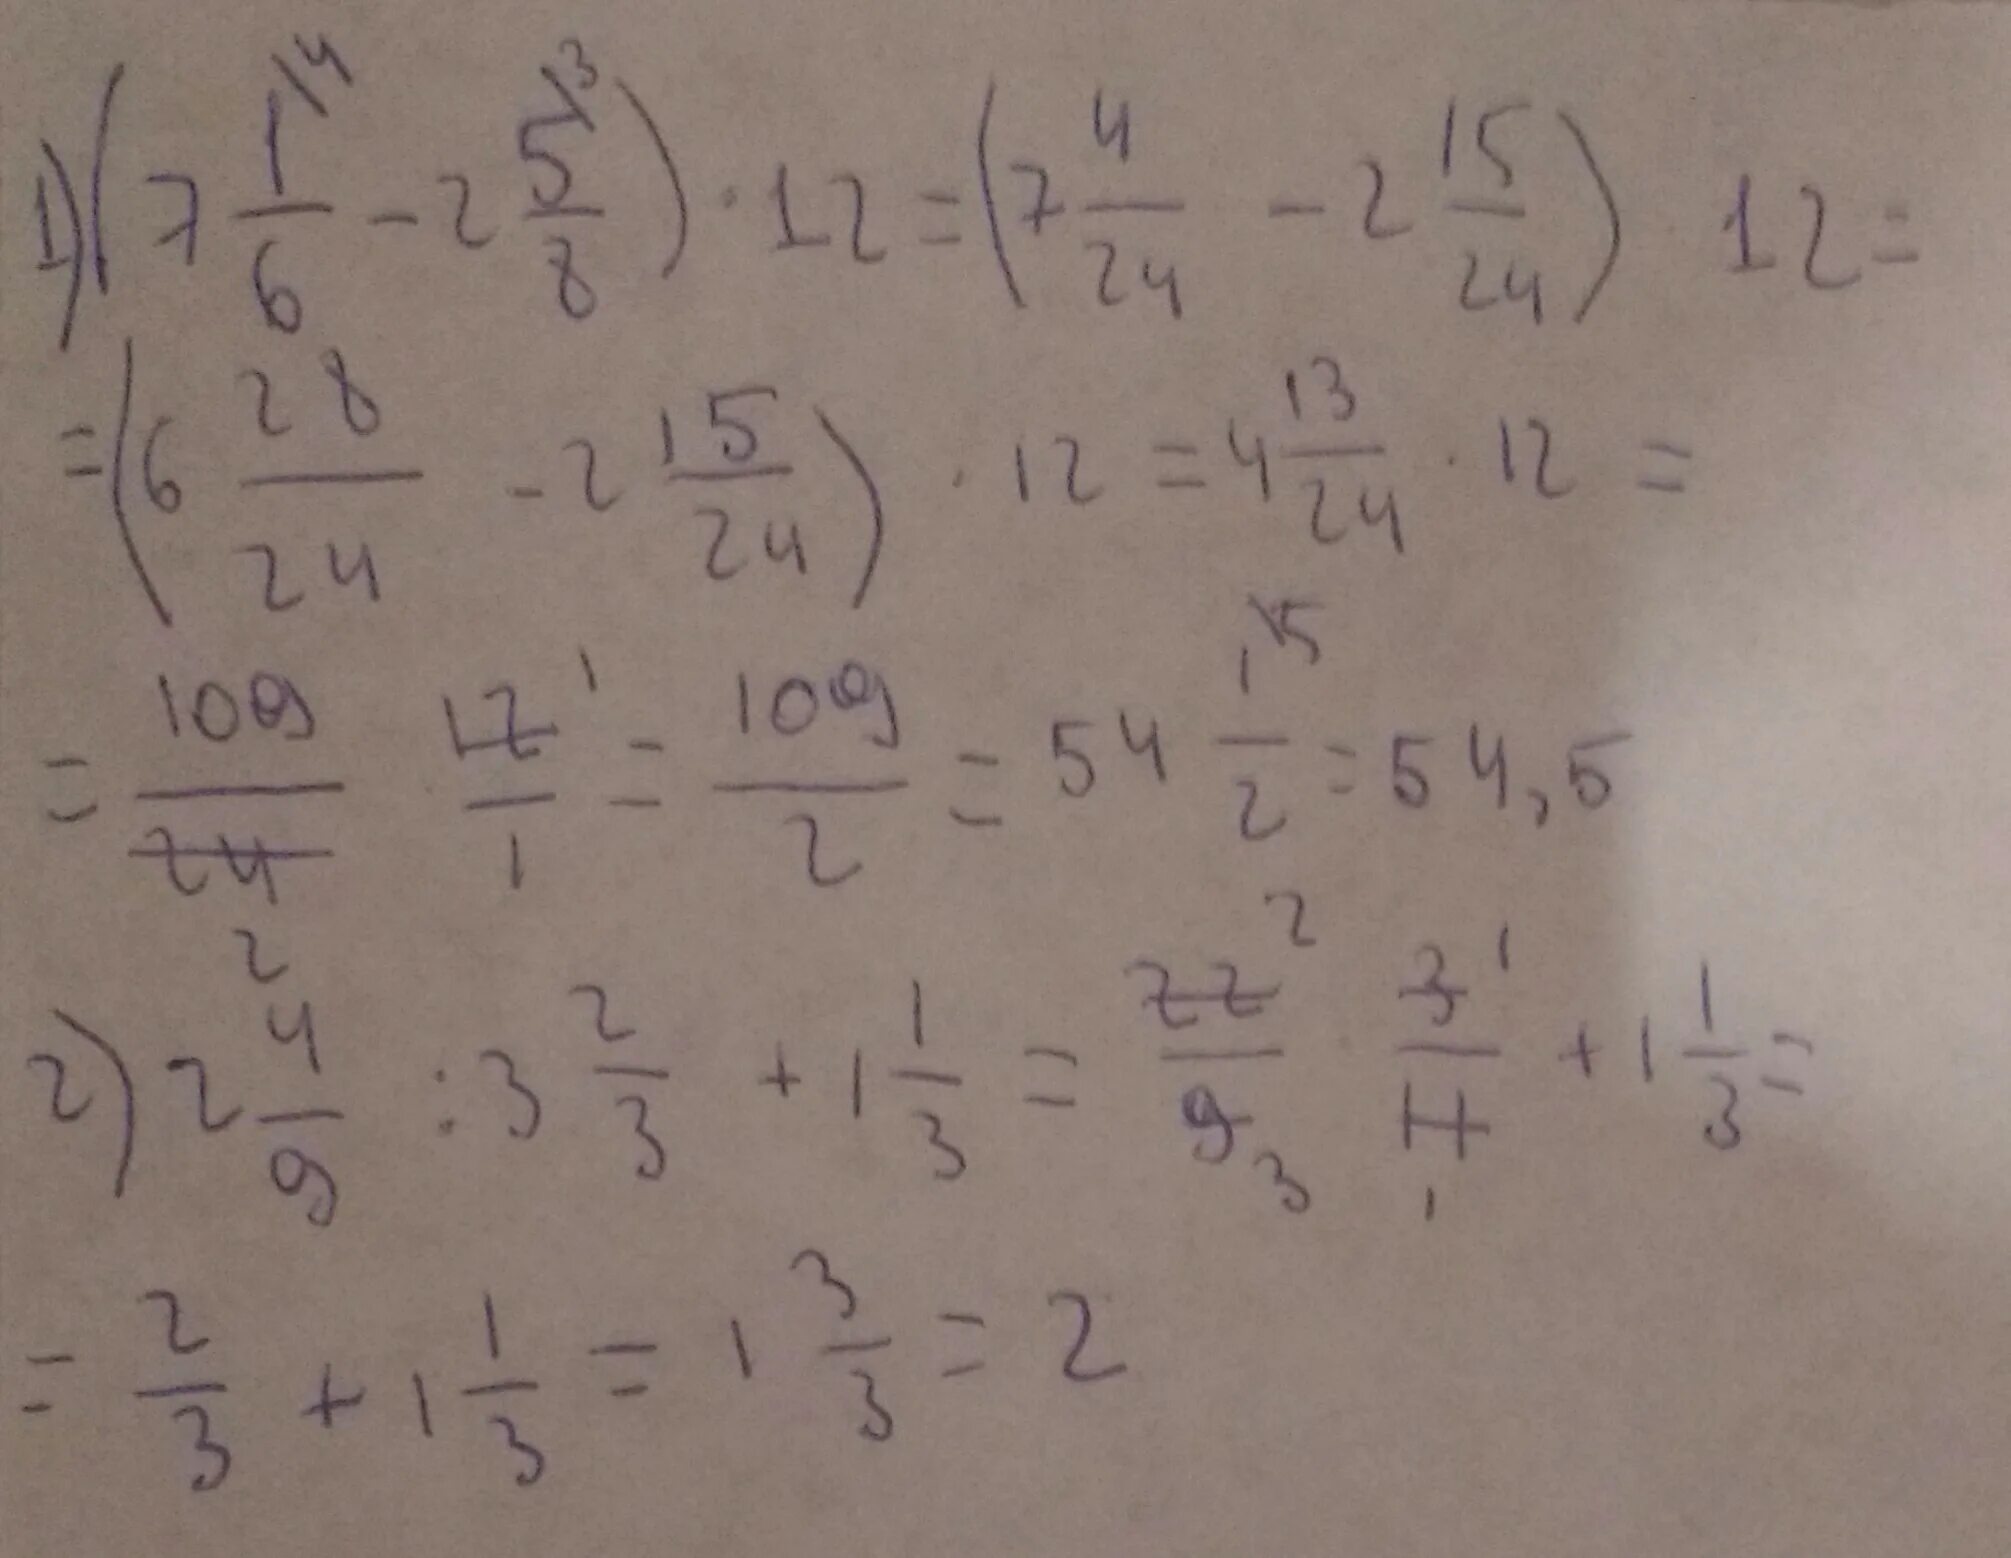 1) (7 1/6 \4 - 2 5/8 \3) · 12 = (7 4/24 - 2 15/24) 12 =
= (6 28/24 - 2 15/24) · 12 = 4 13/24 · 12 =
= 109/24 2 12/1 1 = 109/2 = 54 1/2 \5 = 54,5
2) 2 4/9 : 3 2/3 + 1 1/3 = 22/9 2 3 · 3/11 1 1 + 1 1/3 =
= 2/3 + 1 1/3 = 1 3/3 = 2